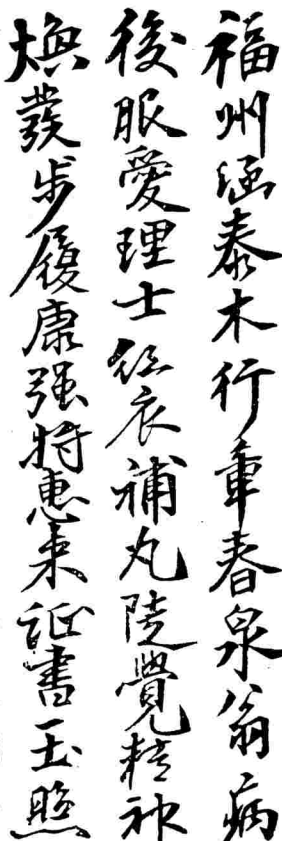 福州涵泰木行章春泉翁病
後服愛理士紅衣補丸陡覺精神
煥發步履康强特惠來証書玉照